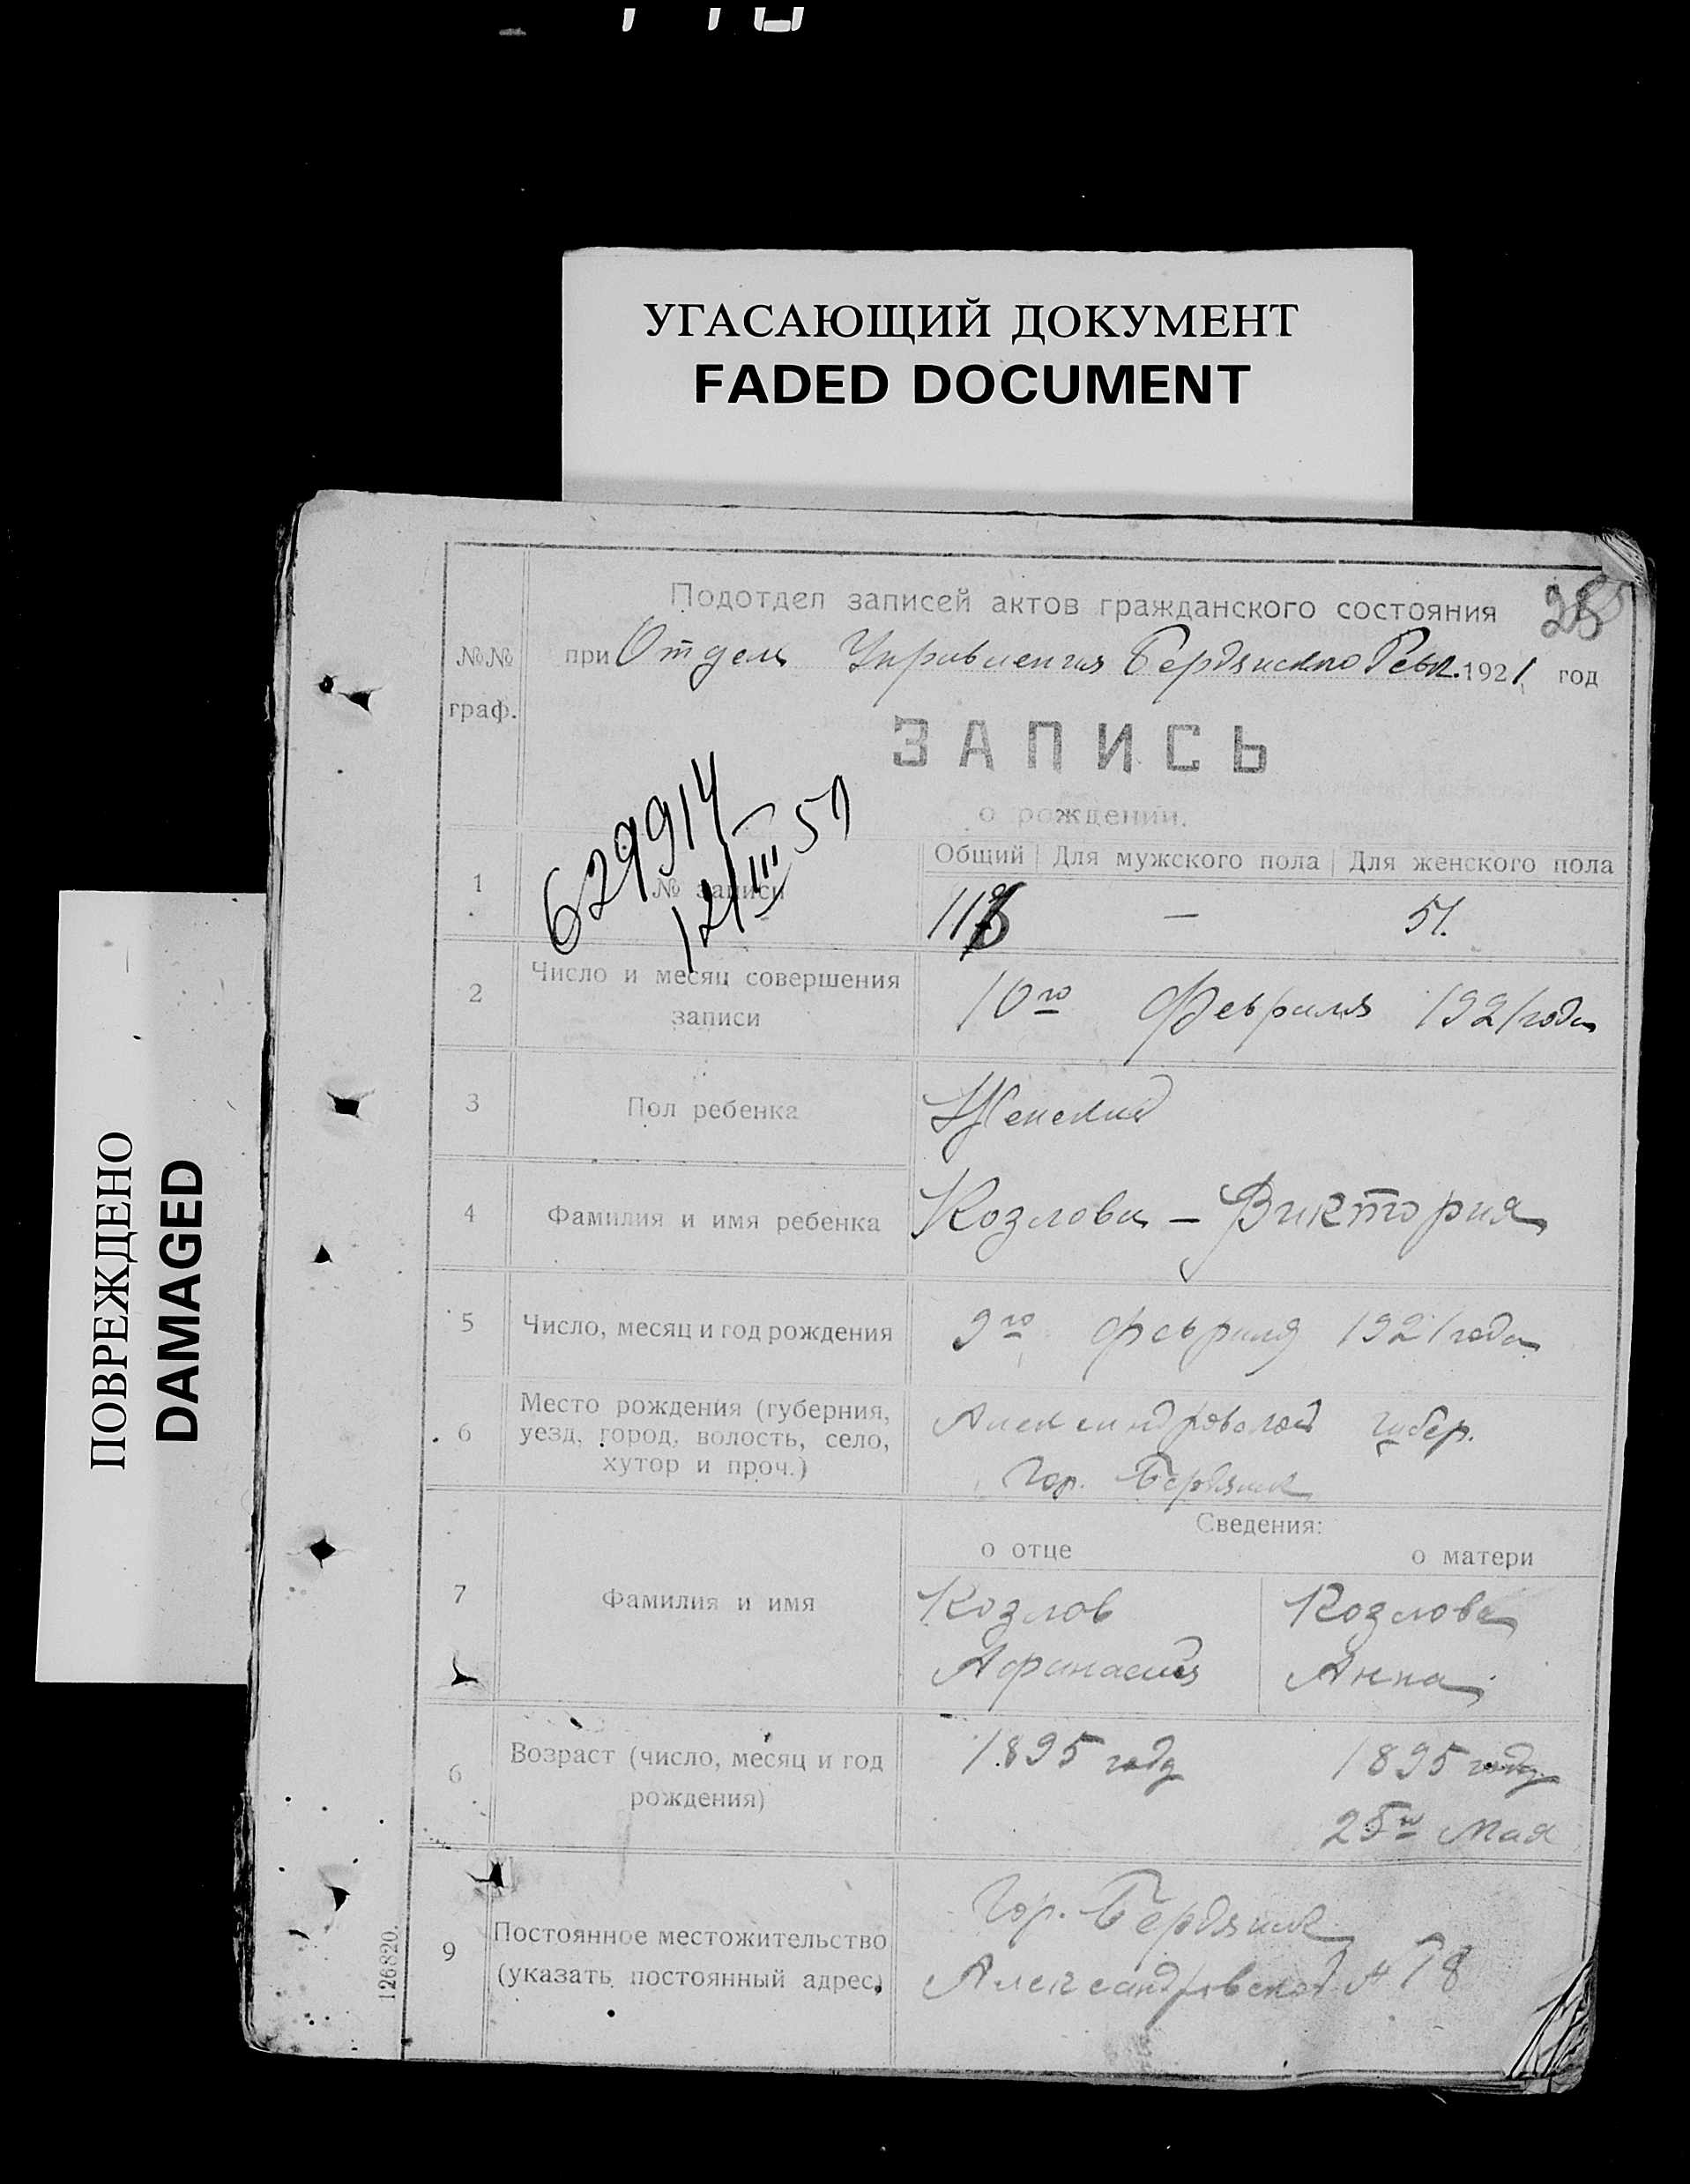 УГАСАЮЩИЙ ДОКУМЕНТ
FADED DOCUMENT
ПОВРЕЖДЕНО
DAMAGED
Подотдел записей актов гражданского состояния
№№ граф.
при Отделе Управления Бердянского Ревк. 1921 год
ЗАПИСЬ
о рождении.
629914
12/III 59
Общий Для мужского пола Для женского пола
1 № записи — 51.
2 Число и месяц совершения
записи
10го Февраля 1921 года
3 Пол ребенка Женский
4 Фамилия и имя ребенка Козлова – Виктория
5 Число, месяц и год рождения 9го февраля 1921 года
6 Место рождения (губерния,
уезд, город, волость, село,
хутор и проч.)
Александровской губер.
Гор. Бердянск
Сведения:
о отце о матери
7 Фамилия и имя
Козлов Козлова
Афанасий Анна
6 Возраст (число, месяц и год
рождения)
1895 году 1895 году
25го Мая
9 Постоянное местожительство
(указать постоянный адрес)
Гор. Бердянск
Александровской № 78
126820.